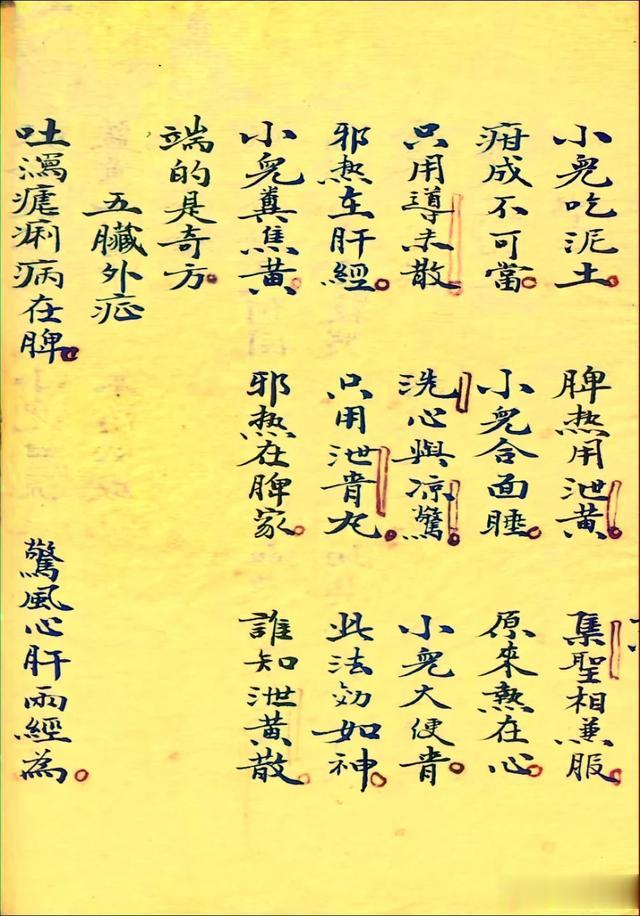 小兒吃泥土。 脾热用泄黄。 集聖相兼服。
疳成不可當。 小兒合面睡。 原來熱在心。
只用導未散。 洗心與凉驚。 小兒大便青。
邪热在肝經。 只用泄青丸。 此法効如神。
小兒糞焦黄。 邪热在脾家。 誰知泄黄散
端的是奇方。
五臟外症
吐瀉瘧痢病在脾。 驚風心肝兩經為。